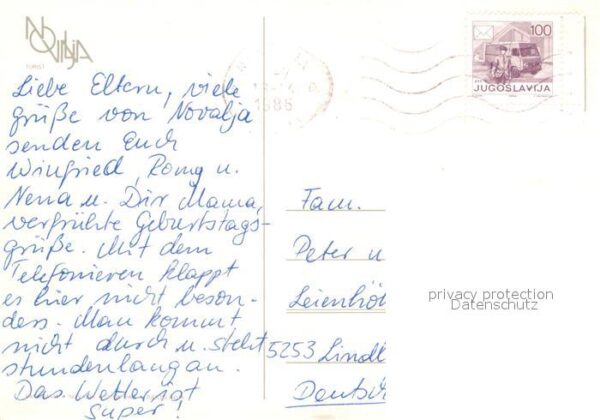 NOVALJA
TURIST
Liebe Eltern, viele
grüße von Novalja
senden Euch
Winfried, Romy u.
Nena u. Dir Mama,
verfrühte Geburtstags-
grüße. Mit dem
Telefonieren klappt
es hier nicht beson-
ders. Man kommt
nicht durch u. steht
stundenlang an.
Das Wetter ist
super!
1986
100
JUGOSLAVIJA
Fam.
Peter u
5253 Lindl
Deutsch
privacy protection
Datenschutz